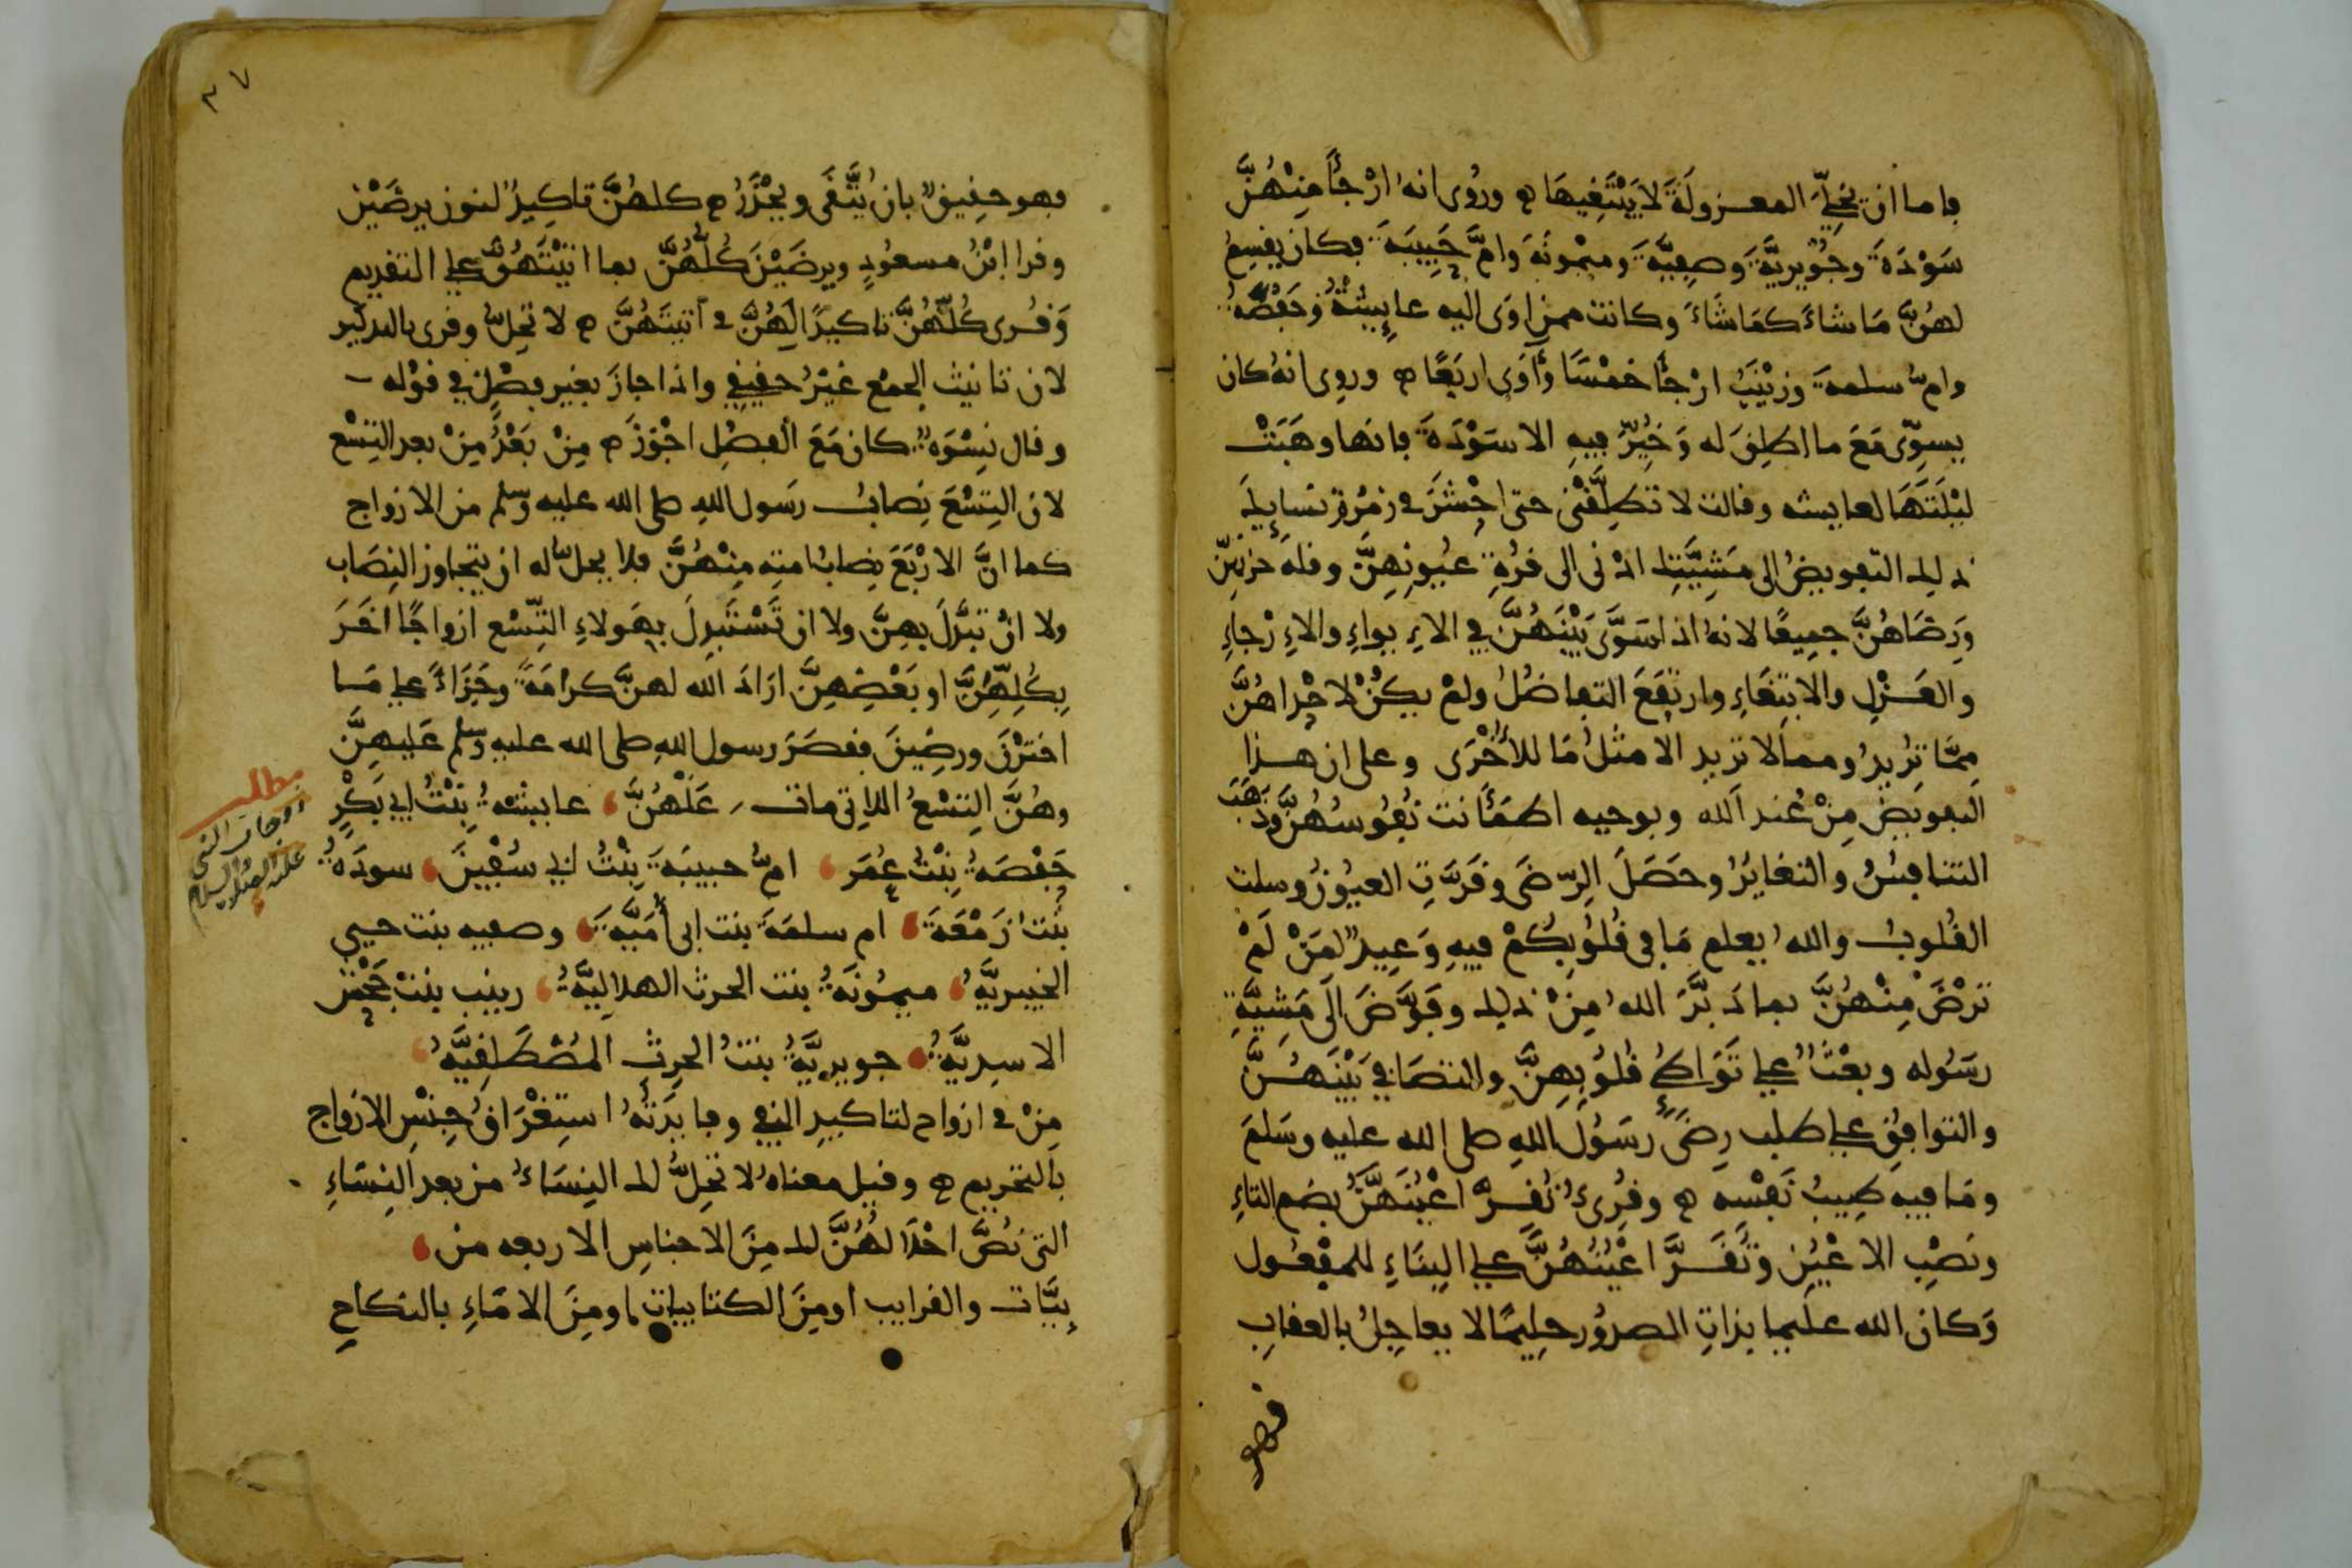 فاما ان يخلي المعزولة لا يبتغيها ه وروى انه ارجأ منهن
سودة وجويرية وصفية وميمونة وام حبيبة فكان يقسم
لهن ما شاء كما شاء وكانت ممن اوى اليه عايشة وحفصة
وام سلمة وزينب ارجأ خمسا وأاوى اربعا ه وروى انه كان
يسوى مع ما اطلق له وخير فيه الا سودة فانها وهبت
ليلتها لعايشه وقالت لا تطلقنى حتى احشر فى زمرة نسايك
ذلك التفويض الى مشيتك ادنى الى قرة عيونهن وقلة حزنهن
ورضاهن جميعا لانه اذا سوى بينهن في الايواء والارجاء
والعزل والابتغاء وارتفع التفاضل ولم يكن لاحداهن
مما تريد ومما لا تريد الا مثل ما للأخرى وعلى ان هذا
التفويض من عند الله وبوحيه اطمأنت نفوسهن وذهب
التنافس والتغاير وحصل الرضى وقرت العيون وسلت
القلوب والله يعلم ما في قلوبكم فيه وعيد لمن لم
ترض منهن بما دبر الله من ذلك وفوض الى مشية
رسوله وبعث على تواطئ قلوبهن والتصافي بينهن
والتوافق على طلب رضى رسول الله صلى الله عليه وسلم
وما فيه طيب نفسه ه وقرئ تقر اعينهن بضم التاء
ونصب الاعين وتقر اعينهن على البناء للمفعول
وكان الله عليما بذات الصدور حليما لا يعاجل بالعقاب
فهو
٣٧
فهو حقيق بان يتقى ويحذر ه كلهن تاكيد لنون يرضين
وقرا ابن مسعود ويرضين كلهن بما اتيتهن على التقديم
وقرى كلهن تاكيدا لهن فى آتيتهن ه لا تحل وقرى بالتذكير
لان تانيث الجمع غير حقيقي واذا جاز بغير فصل في قوله
وقال نسوة كان مع الفصل اجوز ه من بعد من بعد التسع
لان التسع نصاب رسول الله صلى الله عليه وسلم من الازواج
كما ان الاربع نصاب امته منهن فلا يحل له ان يتجاوز النصاب
ولا ان تبدل بهن ولا ان تستبدل بهولاء التسع ازواجا اخر
بكلهن او بعضهن اراد الله لهن كرامة وجزاء على ما
اخترن ورضين فقصر رسول الله صلى الله عليه وسلم عليهن
وهن التسع اللاتى مات عنهن عايشة بنت ابي بكر
حفصة بنت عمر ام حبيبة بنت ابي سفين سودة
بنت زمعة ام سلمة بنت ابى أمية وصفيه بنت حيي
الخيبرية ميمونة بنت الحرث الهلالية زينب بنت جحش
الاسدية جويرية بنت الحرث المصطلقية
من فى ازواج لتاكيد النفي وفايدته استغراق جنس الازواج
بالتحريم ه وقيل معناه لا تحل لك النساء من بعد النساء
التى نص احلالهن لك من الاجناس الاربعه من
بيات والغرايب او من الكتابيات او من الاماء بالنكاح
مطلب
زوجات النبي
عليه الصلاة والسلام